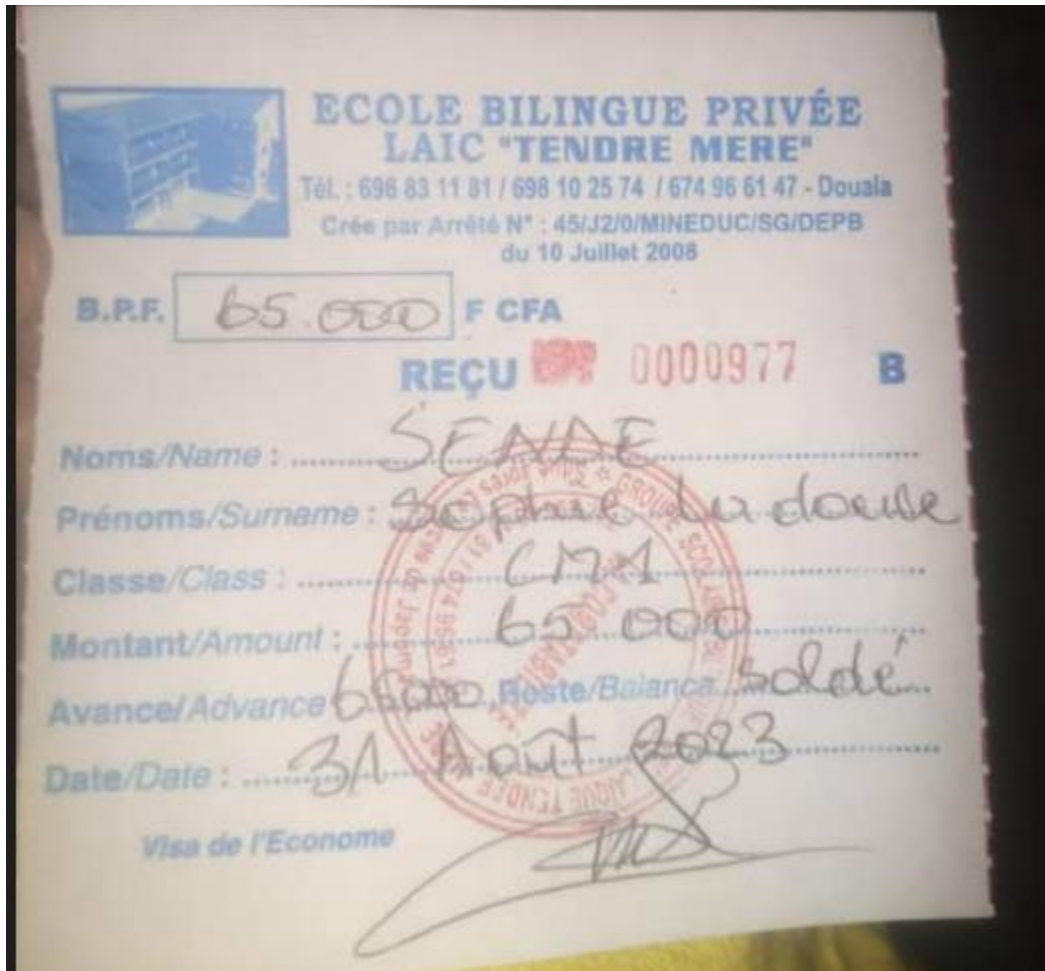 ECOLE BILINGUE PRIVÉE
LAIC "TENDRE MERE"
Tél. : 696 83 11 81 / 698 10 25 74 / 674 96 61 47 - Douala
Crée par Arrêté N° : 45/J2/0/MINEDUC/SG/DEPB
du 10 Juillet 2008
B.P.F. 65.000 F CFA
REÇU 0000977 B
Noms/Name :
Prénoms/Surname : Sophie
Classe/Class : CM1
Montant/Amount : 65 000
Avance/Advance 65000 Reste/Balance soldé
Date/Date : 31 Août 2023
Visa de l'Econome